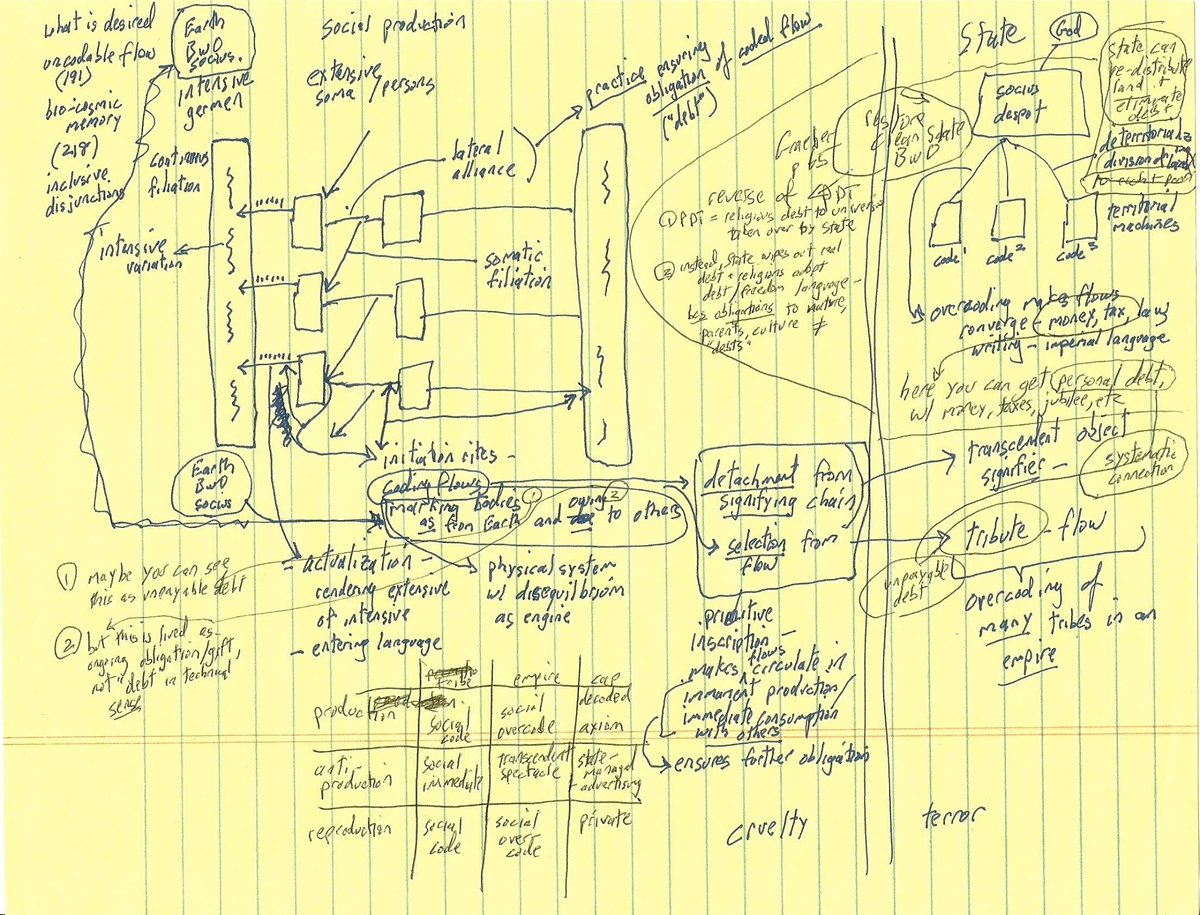 what is desired
uncodable flow
(191)
bio-cosmic
memory
(218)
inclusive
disjunctions
Earth
BwO
socius.
intensive
germen
continuous
filiation
intensive
variation
Earth
BwO
socius
social production
extensive
soma / persons
lateral
alliance
somatic
filiation
practice ensuring
obligation of coded flow
("debt")
initiation rites -
coding flows
marking bodies 1
as from Earth and owing 2 to others
actualization -
rendering extensive
of intensive
- entering language
physical system
w/ disequilbriom
as engine
1 maybe you can see
this as unpayable debt
2 but this is lived as
ongoing obligation/gift,
not "debt in technical
sense
tribe empire cap
production social code social overcode decoded axiom
anti-production social immediate transcendent spectacle state-managed + advertising
reproduction social code social over code private
Graeber
p 65 -
restore
clean slate
BwO
reverse of
1 PDT = religious debt to universe
taken over by state
3 instead, state wipes out real
debt + religions adopt
debt/freedom language -
bcs obligations to nature,
parents, culture ≠
"debts"
detachment from
signifying chain
selection from
flow
primitive
inscription -
makes flows circulate in
immanent production/
immediate consumption
with others
ensures further obligation
cruelty
State
God
socius
despot
state can
re-distribute
land +
eliminate
debt
deterritorializing
division of land
territorial
machines
code 1
code 2
code 3
overcoding makes flows
converge - money, tax, law,
writing - imperial language
here you can get personal debt,
w/ money, taxes, jubilee, etc
transcendent object
signifier -
systematic
connection
tribute - flow
unpayable
debt
overcoding of
many tribes in an
empire
terror